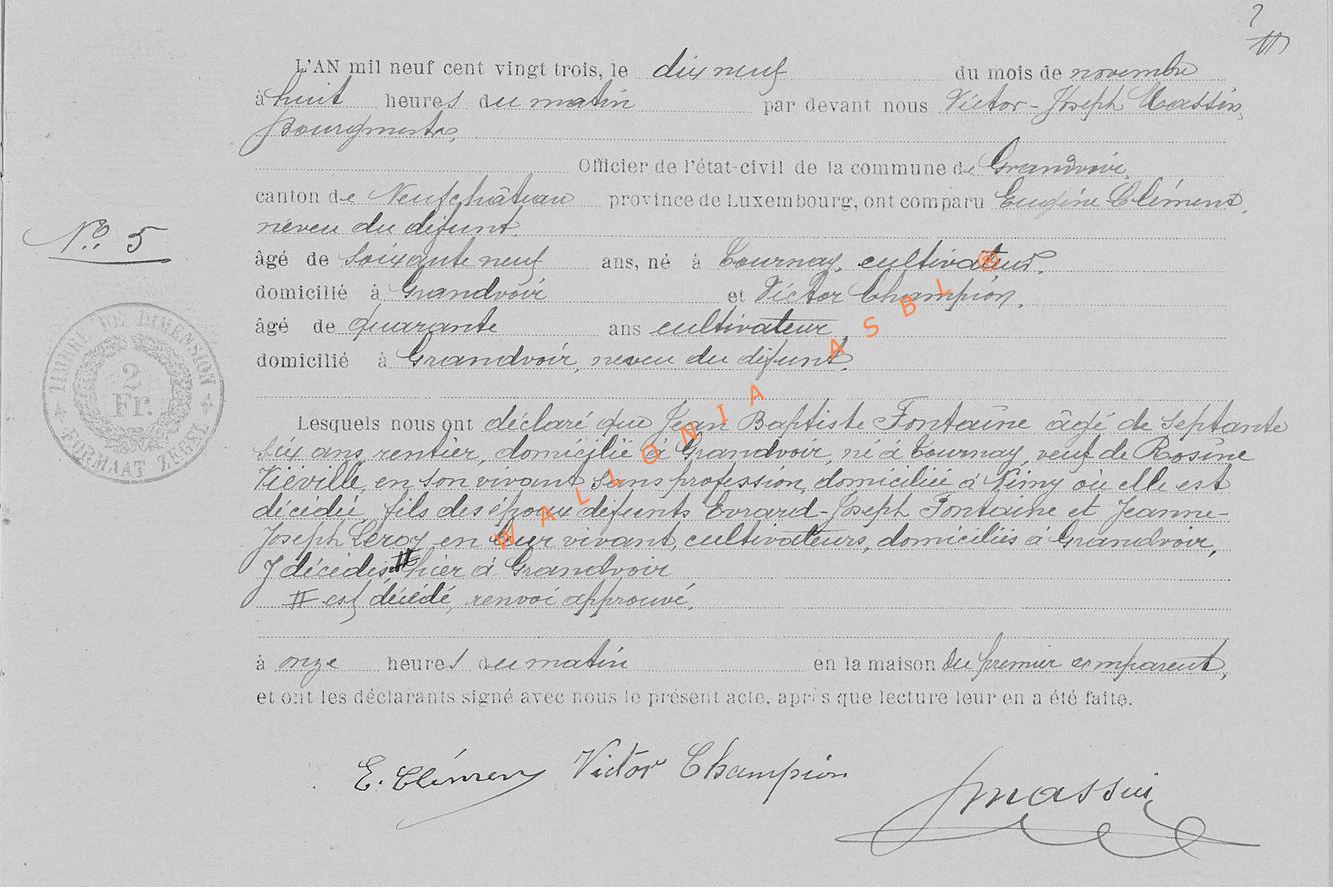 L'AN mil neuf cent vingt trois, le dix neuf du mois de novembre
à huit heures du matin par devant nous Victor-Joseph Massin,
Bourgmestre,
Officier de l'état-civil de la commune de Grandvoir,
canton de Neufchâteau province de Luxembourg, ont comparu Eugène Clément,
neveu du défunt.
No 5
âgé de soixante neuf ans, né à Tournay, cultivateur.
domicilié à Grandvoir et Victor Champion,
âgé de quarante ans cultivateur,
domicilié à Grandvoir, neveu du défunt.
TIMBRE DE DIMENSION
2
Fr.
FORMAAT ZEGEL
WALLONIA ASBL ®
Lesquels nous ont déclaré que Jean Baptiste Fontaine âgé de septante
six ans, rentier, domicilié à Grandvoir, né à Tournay, veuf de Rosine
Viéville, en son vivant sans profession, domiciliée à Nimy où elle est
décédée, fils des époux défunts Evrard-Joseph Fontaine et Jeanne-
Joseph Leroy en leur vivant, cultivateurs, domiciliés à Grandvoir,
y décédés, # hier à Grandvoir
# est décédé, renvoi approuvé.
à onze heures du matin en la maison du premier comparent,
et ont les déclarants signé avec nous le présent acte, après que lecture leur en a été faite.
E. Clément Victor Champion
Jmassin